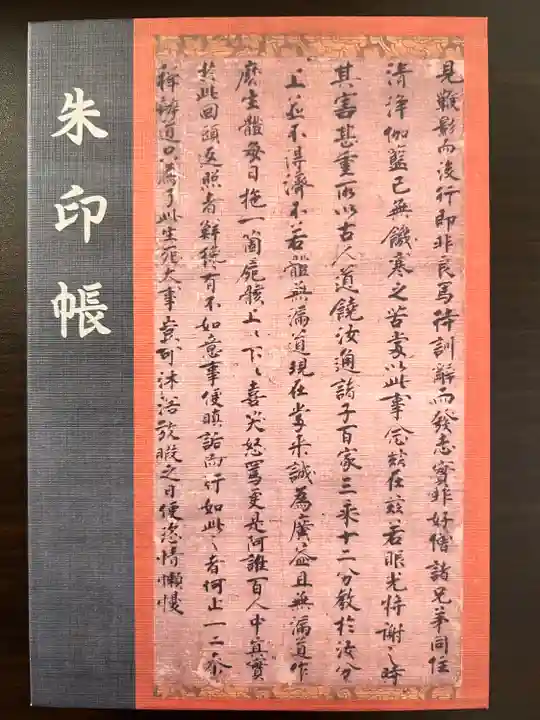 朱印帳
見鞭影而後行即非良馬待訓辭而發志實非好僧諸兄弟同住
清淨伽藍已無饑寒之苦當以此事念茲在茲若眼光将謝之時
其害甚重所以古人道饒汝通諸子百家三乘十二分教於汝分
上並不得濟不若體無漏道現在當来誠為廣益且無漏道作
麼生體每日拖一箇屍骸上〻下〻喜笑怒罵更是阿誰百人中真實
於此回頭返照者鮮縱有不如意事便瞋詬而行如此之者何止一二參
禪辨道只為了此生死大事豈可沐浴放暇之日便恣情懶慢